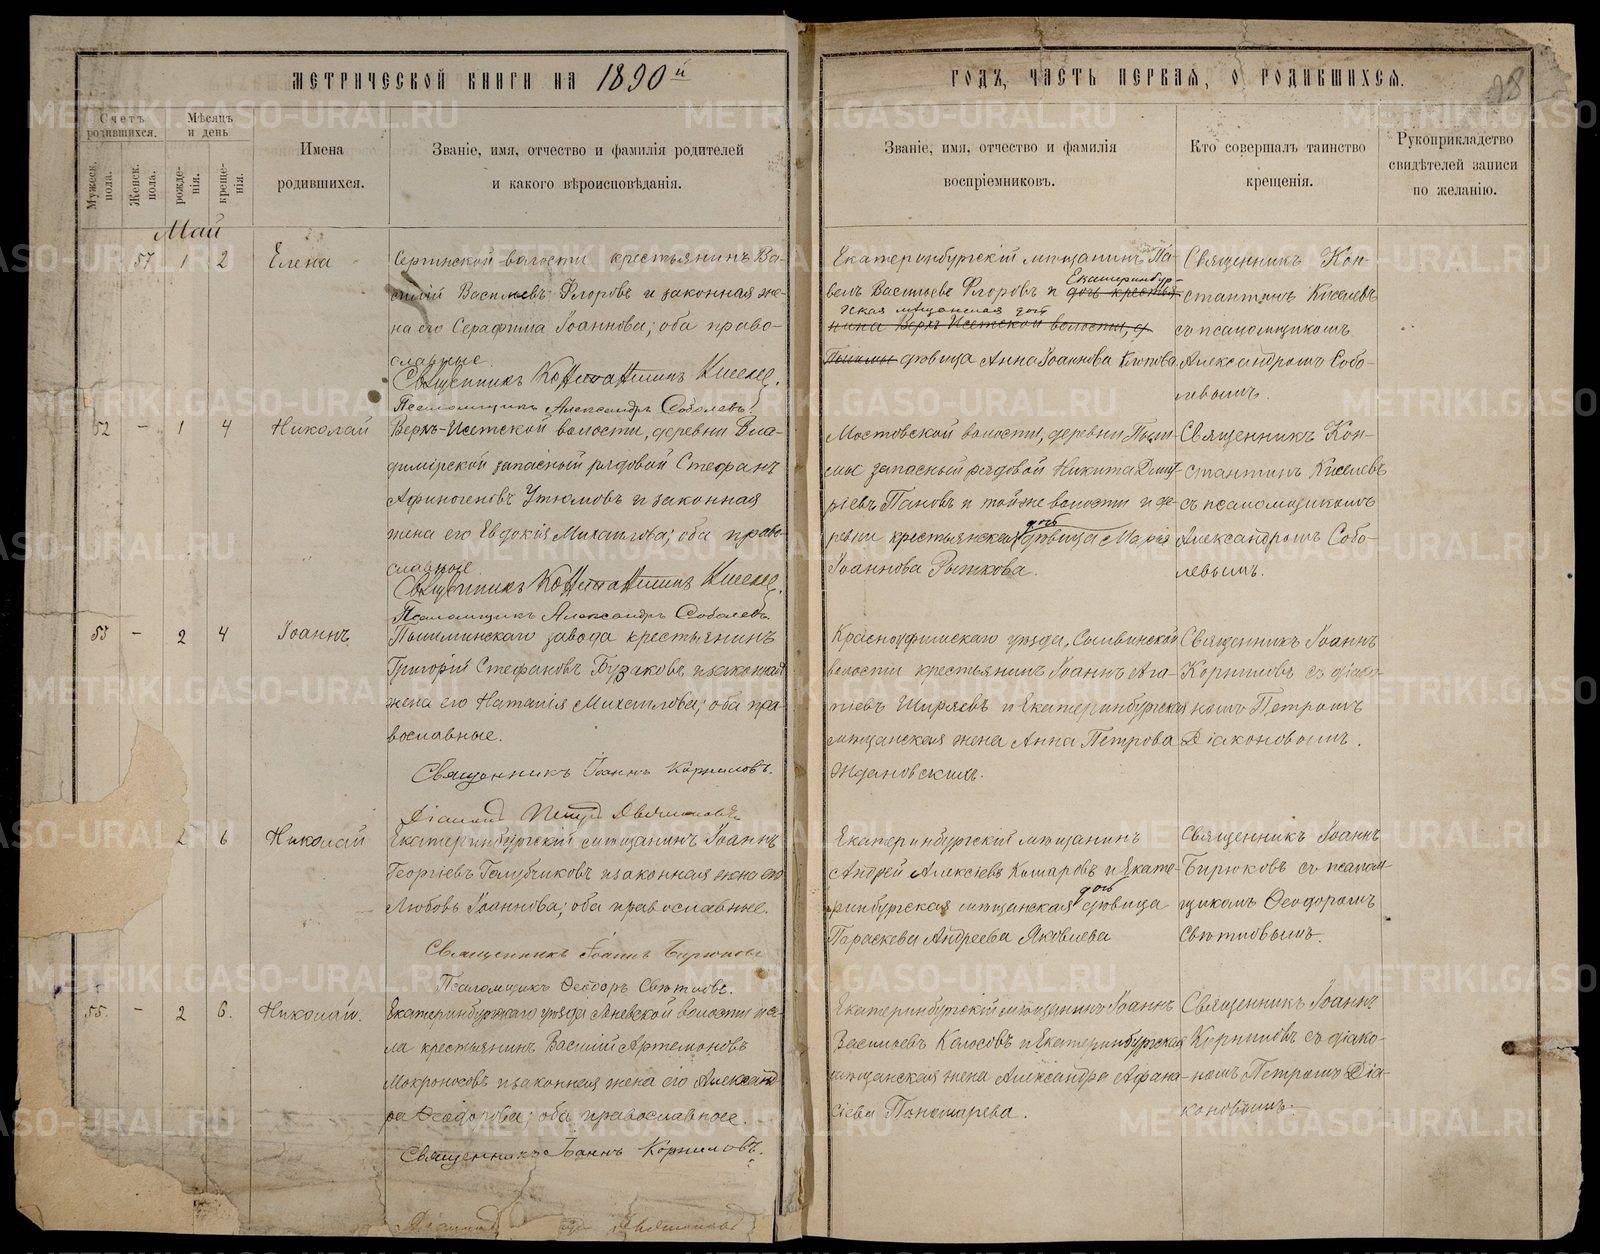 МЕТРИЧЕСКОЙ КНИГИ НА 1890й
ГОДЪ, ЧАСТЬ ПЕРВАЯ, О РОДИВШИХСЯ.
28
Счетъ родившихся.
Мужеск. пола.
Женск. пола.
Мѣсяцъ и день
рожденія.
крещенія.
Имена
родившихся.
Званіе, имя, отчество и фамилія родителей
и какого вѣроисповѣданія.
Званіе, имя, отчество и фамилія
воспріемниковъ.
Кто совершалъ таинство
крещенія.
Рукоприкладство
свидѣтелей записи
по желанію.
Май
57 1 2 Елена
крестьянинъ Ва-
силій Васильевъ Флоровъ и законная же-
на его Серафима Іоаннова; оба право-
славные
Священникъ Константинъ Киселев.
Псаломщикъ Александръ Соболевъ
Екатеринбургскій мѣщанинъ Па-
велъ Васильевъ Флоровъ и Екатеринбург-
ская мѣщанская дочь
дѣвица Анна Іоаннова
Священникъ Кон-
стантинъ Киселевъ
съ псаломщикомъ
Александромъ Собо-
левымъ.
52 - 1 4 Николай
Верхъ-Исетской волости, деревни Вла-
димірской запасный рядовой Стефанъ
Афиногеновъ Утюмовъ и законная
жена его Евдокія Михаилова; оба право-
славные
Священникъ Константинъ Киселев.
Псаломщикъ Александръ Соболевъ
Мостовской волости, деревни Пыш-
мы запасный рядовой Никита Дмит-
ріевъ Пановъ и той-же волости и де-
ревни крестьянская дочь дѣвица Марія
Іоаннова Рыжкова.
Священникъ Кон-
стантинъ Киселевъ
съ псаломщикомъ
Александромъ Собо-
левымъ.
53 - 2 4 Іоаннъ
Пышминскаго завода крестьянинъ
Григорій Стефановъ Бузаковъ и законная
жена его Наталія Михаилова; оба пра-
вославные.
Священникъ Іоаннъ Корниловъ.
Діаконъ Петръ Діаконовъ
Красноуфимскаго уѣзда, Сылвинской
волости крестьянинъ Іоаннъ Ага-
піевъ Ширяевъ и Екатеринбургская
мѣщанская жена Анна Петрова
Ждановскихъ.
Священникъ Іоаннъ
Корниловъ съ діако-
номъ Петромъ
Діаконовымъ.
2 6 Николай
Екатеринбургскій мѣщанинъ Іоаннъ
Георгіевъ Голубчиковъ и законная жена его
Любовь Іоаннова; оба православные.
Священникъ Іоаннъ Бирюковъ
Псаломщикъ Ѳеодоръ Свѣтловъ.
Екатеринбургскій мѣщанинъ
Андрей Алексіевъ Комаровъ и Екате-
ринбургская мѣщанская дочь дѣвица
Параскева Андреева Яковлева
Священникъ Іоаннъ
Бирюковъ съ псалом-
щикомъ Ѳеодоромъ
Свѣтловымъ.
55. - 2 6. Николай.
Екатеринбургскаго уѣзда Аневской волости и се-
ла крестьянинъ Василій Артемоновъ
Мокроносовъ и законная жена его Александ-
ра Ѳеодорова; оба православные.
Священникъ Іоаннъ Корниловъ.
Діаконъ
Екатеринбургскій мѣщанинъ Іоаннъ
Васильевъ Колосовъ и Екатеринбургская
мѣщанская жена Александра Афана-
сіева Пономарева.
Священникъ Іоаннъ
Корниловъ съ діако-
номъ Петромъ Діа-
коновымъ.
METRIKI.GASO-URAL.RU